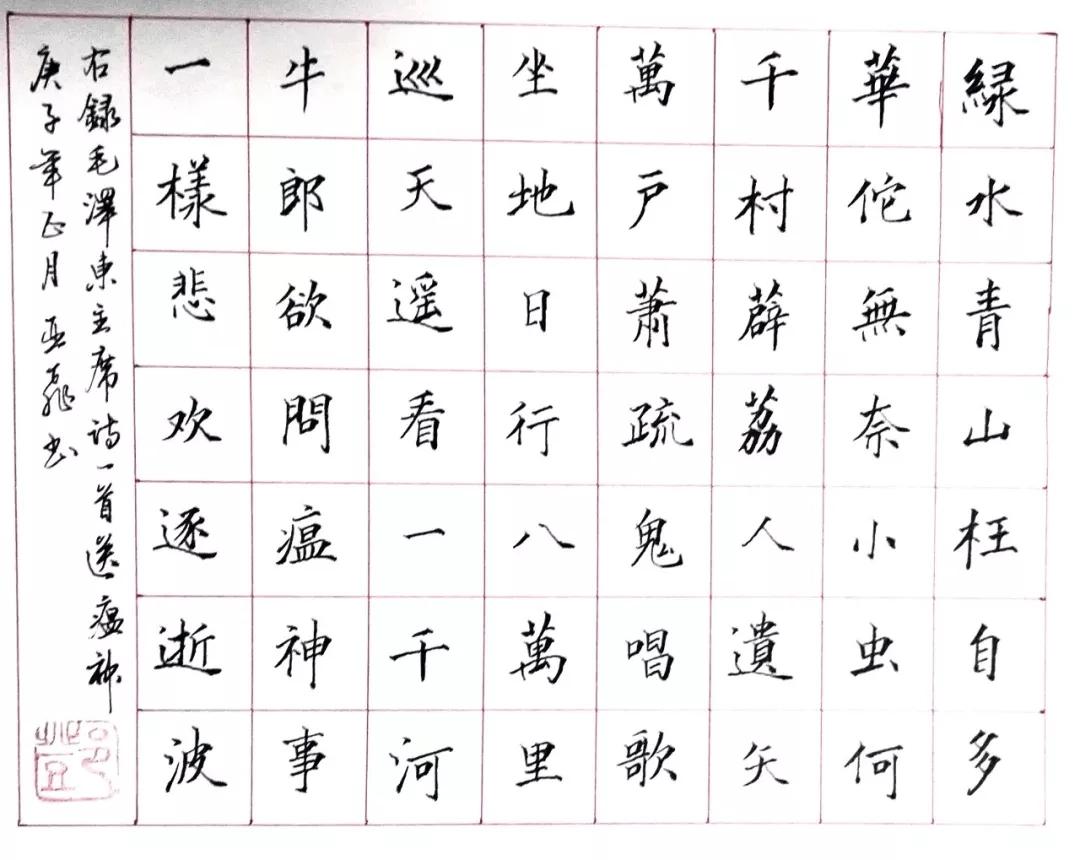 緑水青山枉自多
華佗無奈小虫何
千村薜荔人遺矢
萬户蕭疏鬼唱歌
坐地日行八萬里
巡天遥看一千河
牛郎欲問瘟神事
一樣悲欢逐逝波
右録毛澤東主席诗一首送瘟神
庚子年正月亚飛书